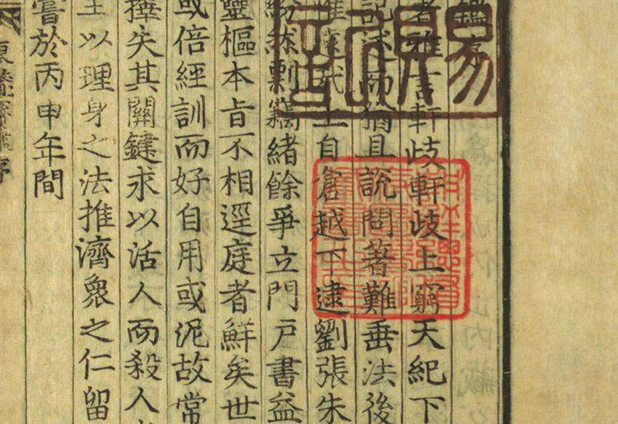 鑑序
者雅言軒歧軒歧上窮天紀下
記述而猶且說問著難垂法後
上自倉越下逮劉張朱
剽竊緒餘爭立門戶書益
靈樞本旨不相逕庭者鮮矣世
或倍經訓而好自用或泥故常
擇失其關鍵求以活人而殺人
王以理身之法推濟衆之仁留
嘗於丙申年間
東醫寶鑑序